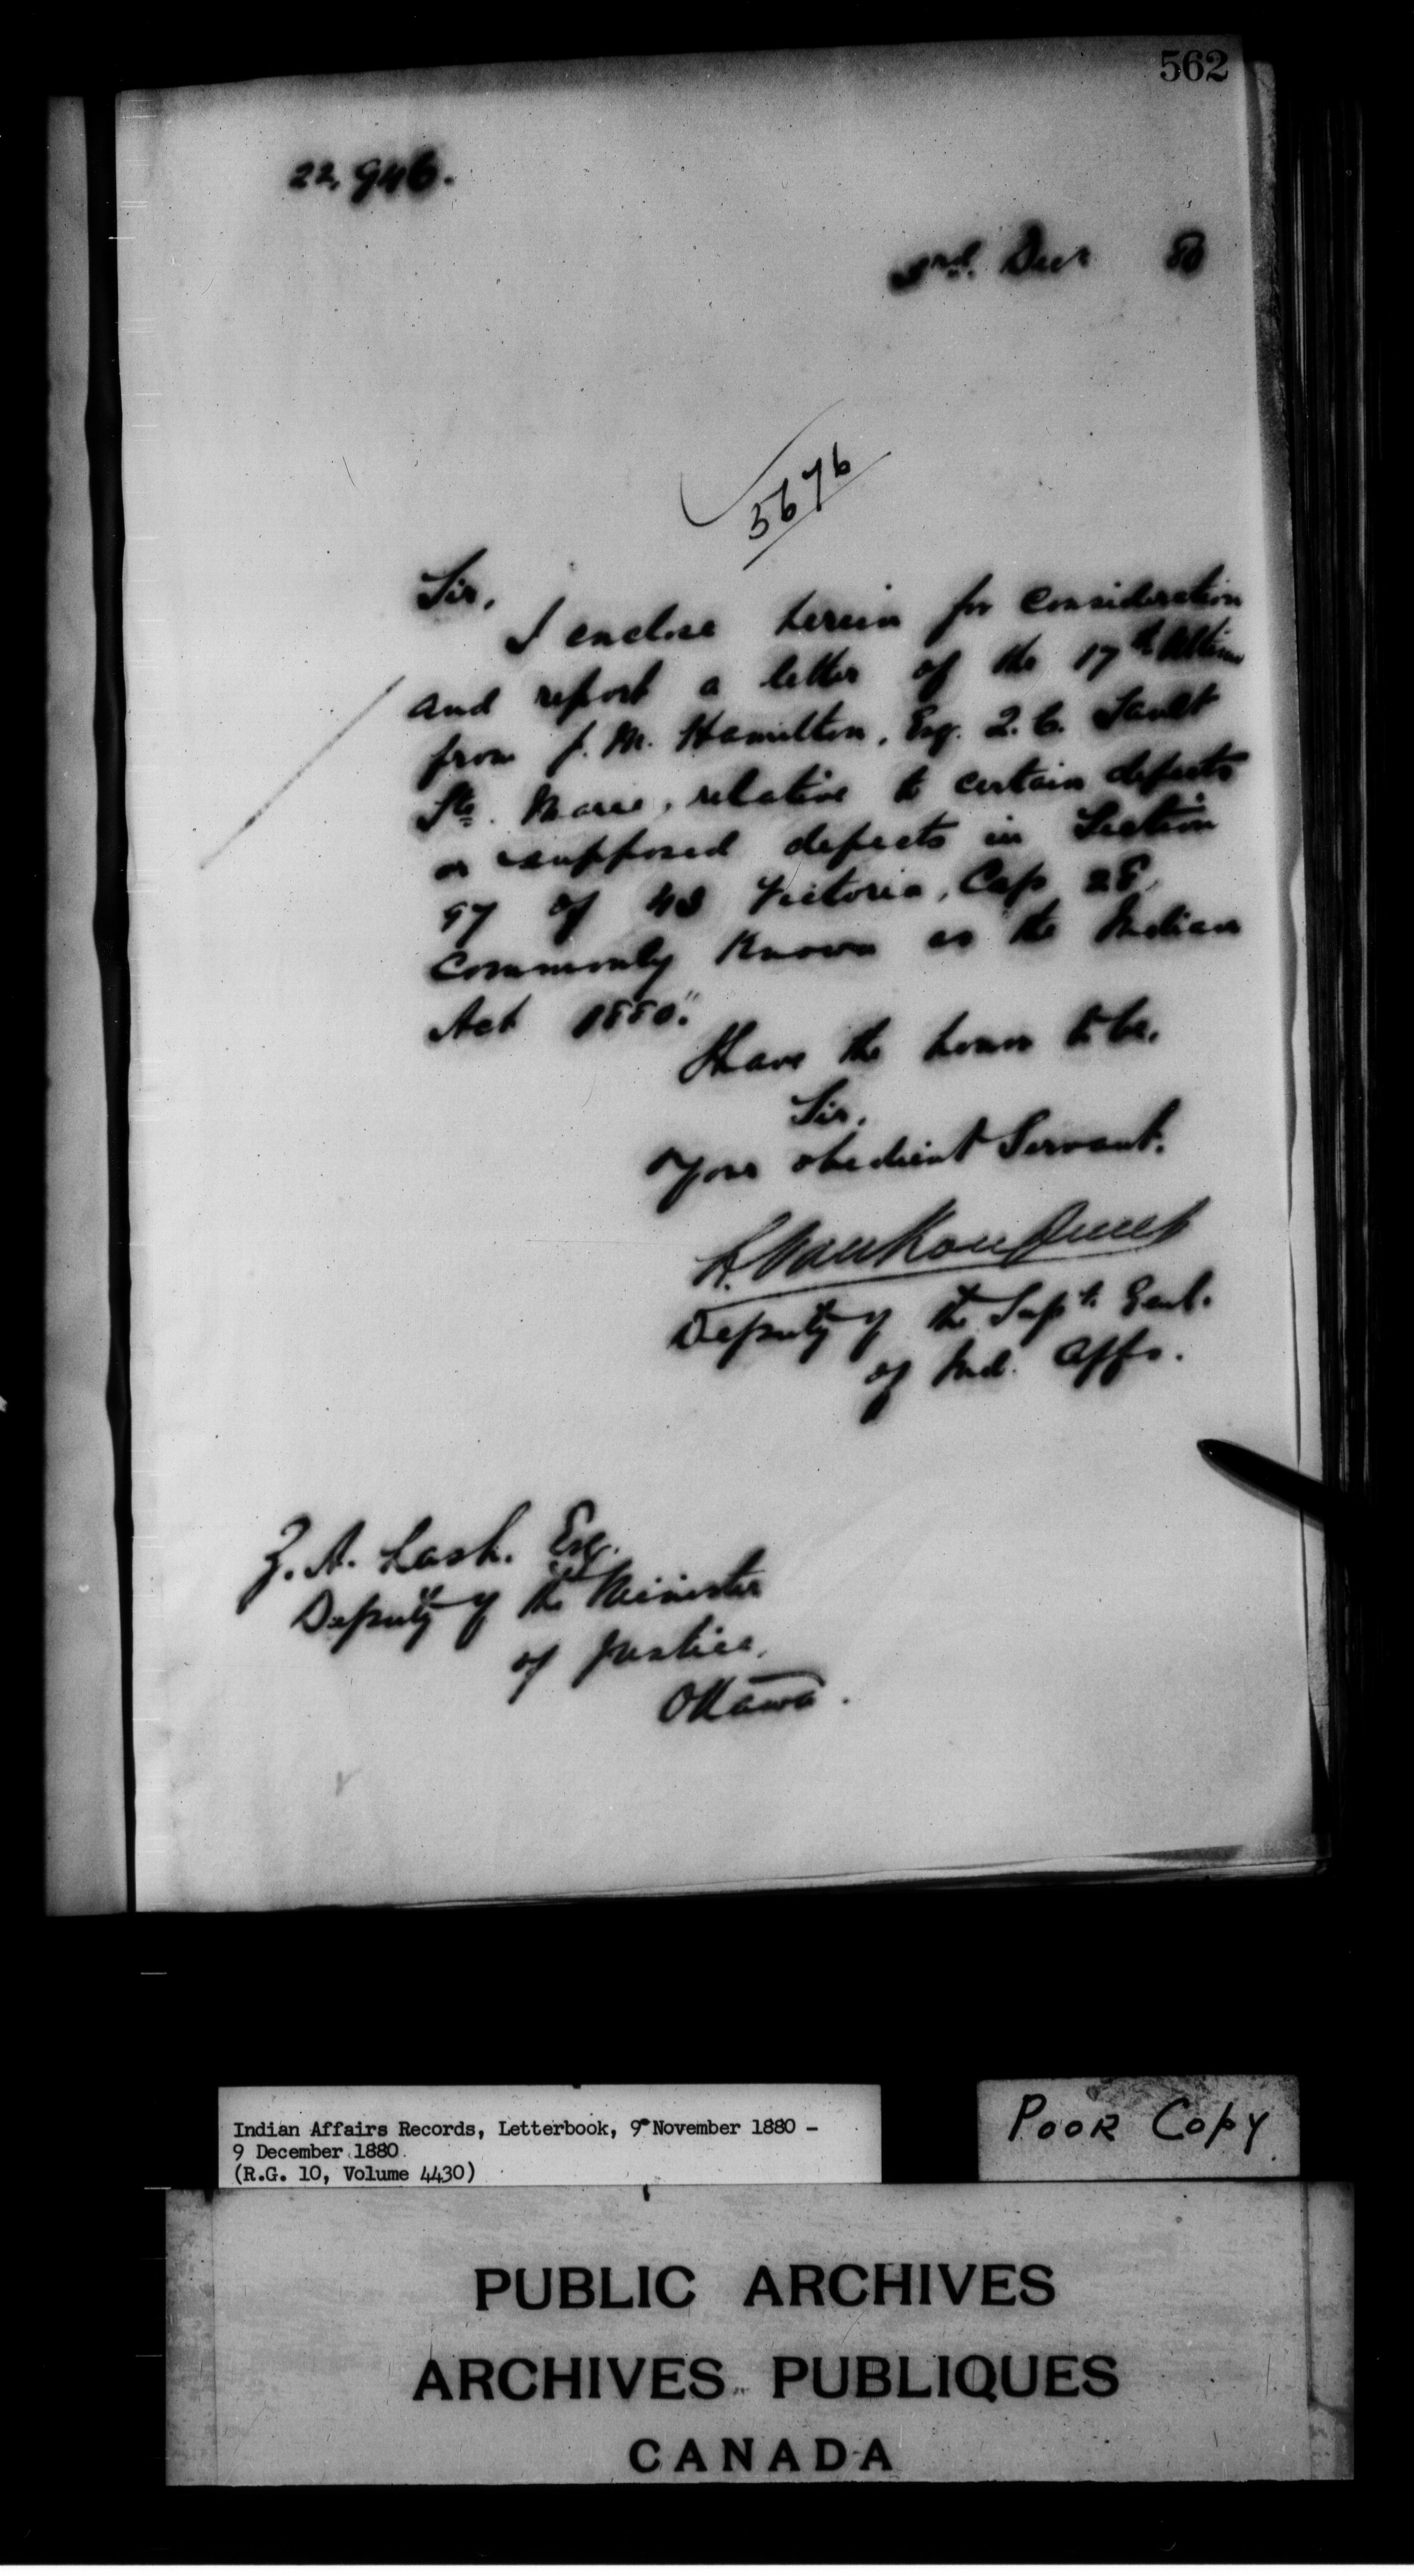 562
22,946.
3rd. Decr 80
5676
Sir,
I enclose herein for consideration
and report a letter of the 17th Ultimo
from J. M. Hamilton, Esq. Q. C. Sault
Ste. Marie, relative to certain defects
or supposed defects in Section
97 of 43 Victoria, Cap 28,
commonly known as the Indian
Act 1880."
I have the honor to be,
Sir,
Your obedient Servant.
L. VanKoughnet
Deputy of the Supt. Genl.
of Ind. Affs.
Z. A. Lash. Esq.
Deputy of the Minister
of Justice,
Ottawa.
Indian Affairs Records, Letterbook, 9 November 1880 -
9 December 1880
(R.G. 10, Volume 4430)
POOR COPY
PUBLIC ARCHIVES
ARCHIVES PUBLIQUES
CANADA